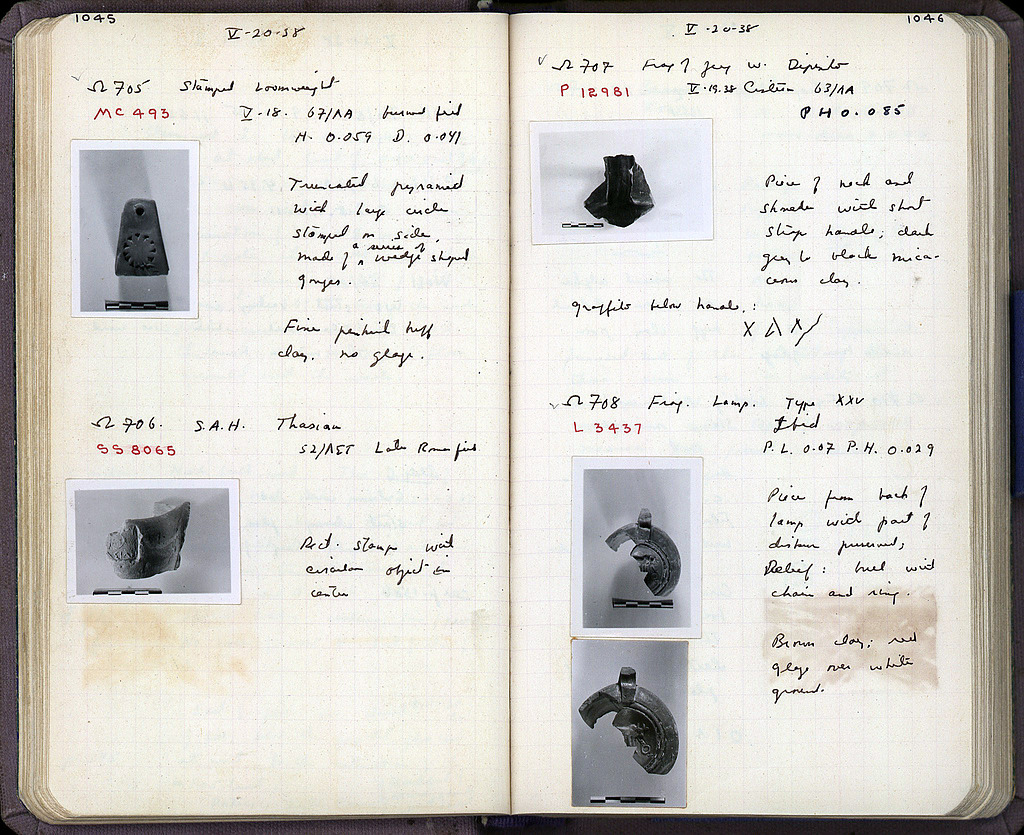 1045
V-20-38
Ω 705 Stamped Loomweight
MC 493 V-18. 67/ΛΑ burned fill
H. 0.059 D. 0.041
Truncated pyramid
with large circle
stamped on side,
made of a series of wedge shaped
gouges.
Fine pinkish buff
clay. no glaze.
Ω 706. S.A.H. Thasian
SS 8065 52/ΛΣΤ Late Roman fill
Rect. stamp with
circular object in
center
1046
V-20-38
Ω 707 Frag of grey w. Deposito
P 12981 V-19.38 Cistern 63/ΛΑ
PH 0.085
Piece of neck and
shoulder with short
strap handle; dark
grey to black mica-
ceous clay.
graffito below handle:
Ω 708 Frag. Lamp. Type XXV
L 3437 Ibid
P.L. 0.07 P.H. 0.029
Piece from back of
lamp with part of
discus preserved;
Relief: bull with
chain and ring.
Brown clay; red
glaze over white
ground.